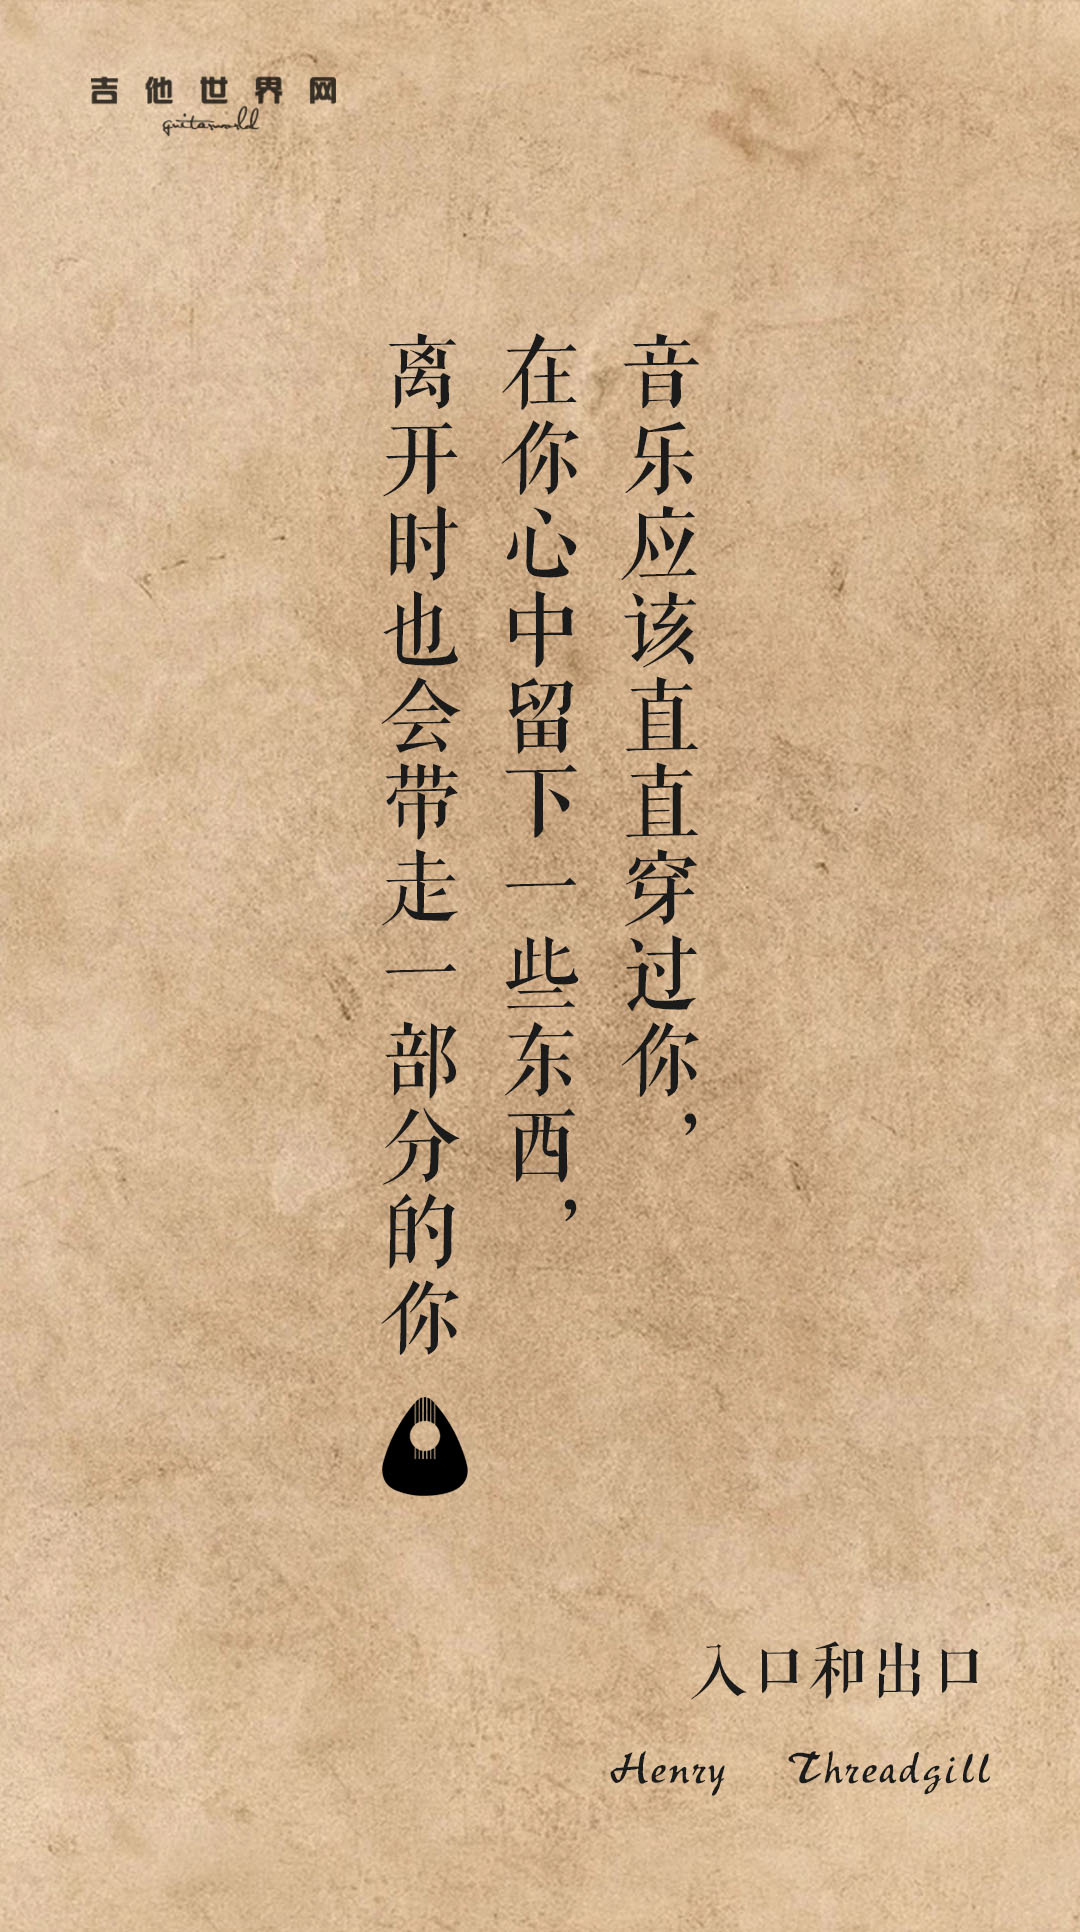 吉他世界网
guitarworld
音乐应该直直穿过你，
在你心中留下一些东西，
离开时也会带走一部分的你
入口和出口
Henry Threadgill